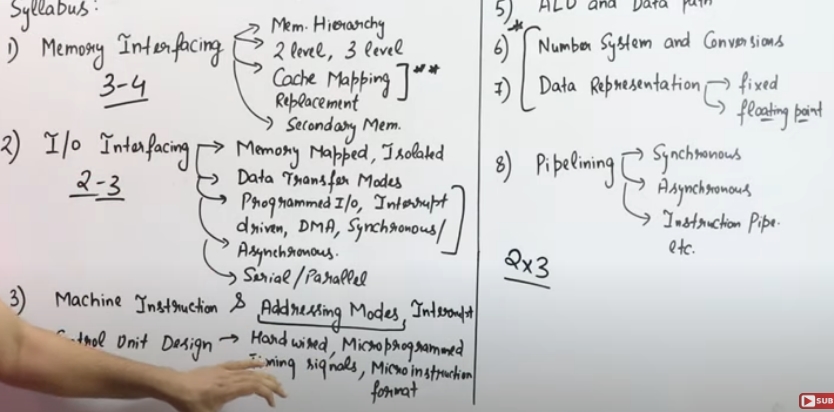 Syllabus:
1) Memory Interfacing
3-4
Mem. Hierarchy
2 level, 3 level
Cache Mapping ] **
Replacement
Secondary Mem.
2) I/o Interfacing
2-3
Memory Mapped, Isolated
Data Transfer Modes
Programmed I/o, Interrupt
driven, DMA, Synchronous/
Asynchronous.
Serial/Parallel
3) Machine Instruction & Addressing Modes, Interrupt
Unit Design → Hardwired, Microprogrammed
signals, Microinstruction
format
5) ALU and Data Path
6) * Number System and Conversions
7) Data Representation → fixed
→ floating point
8) Pipelining → Synchronous
→ Asynchronous
→ Instruction Pipe.
etc.
2x3
SUB